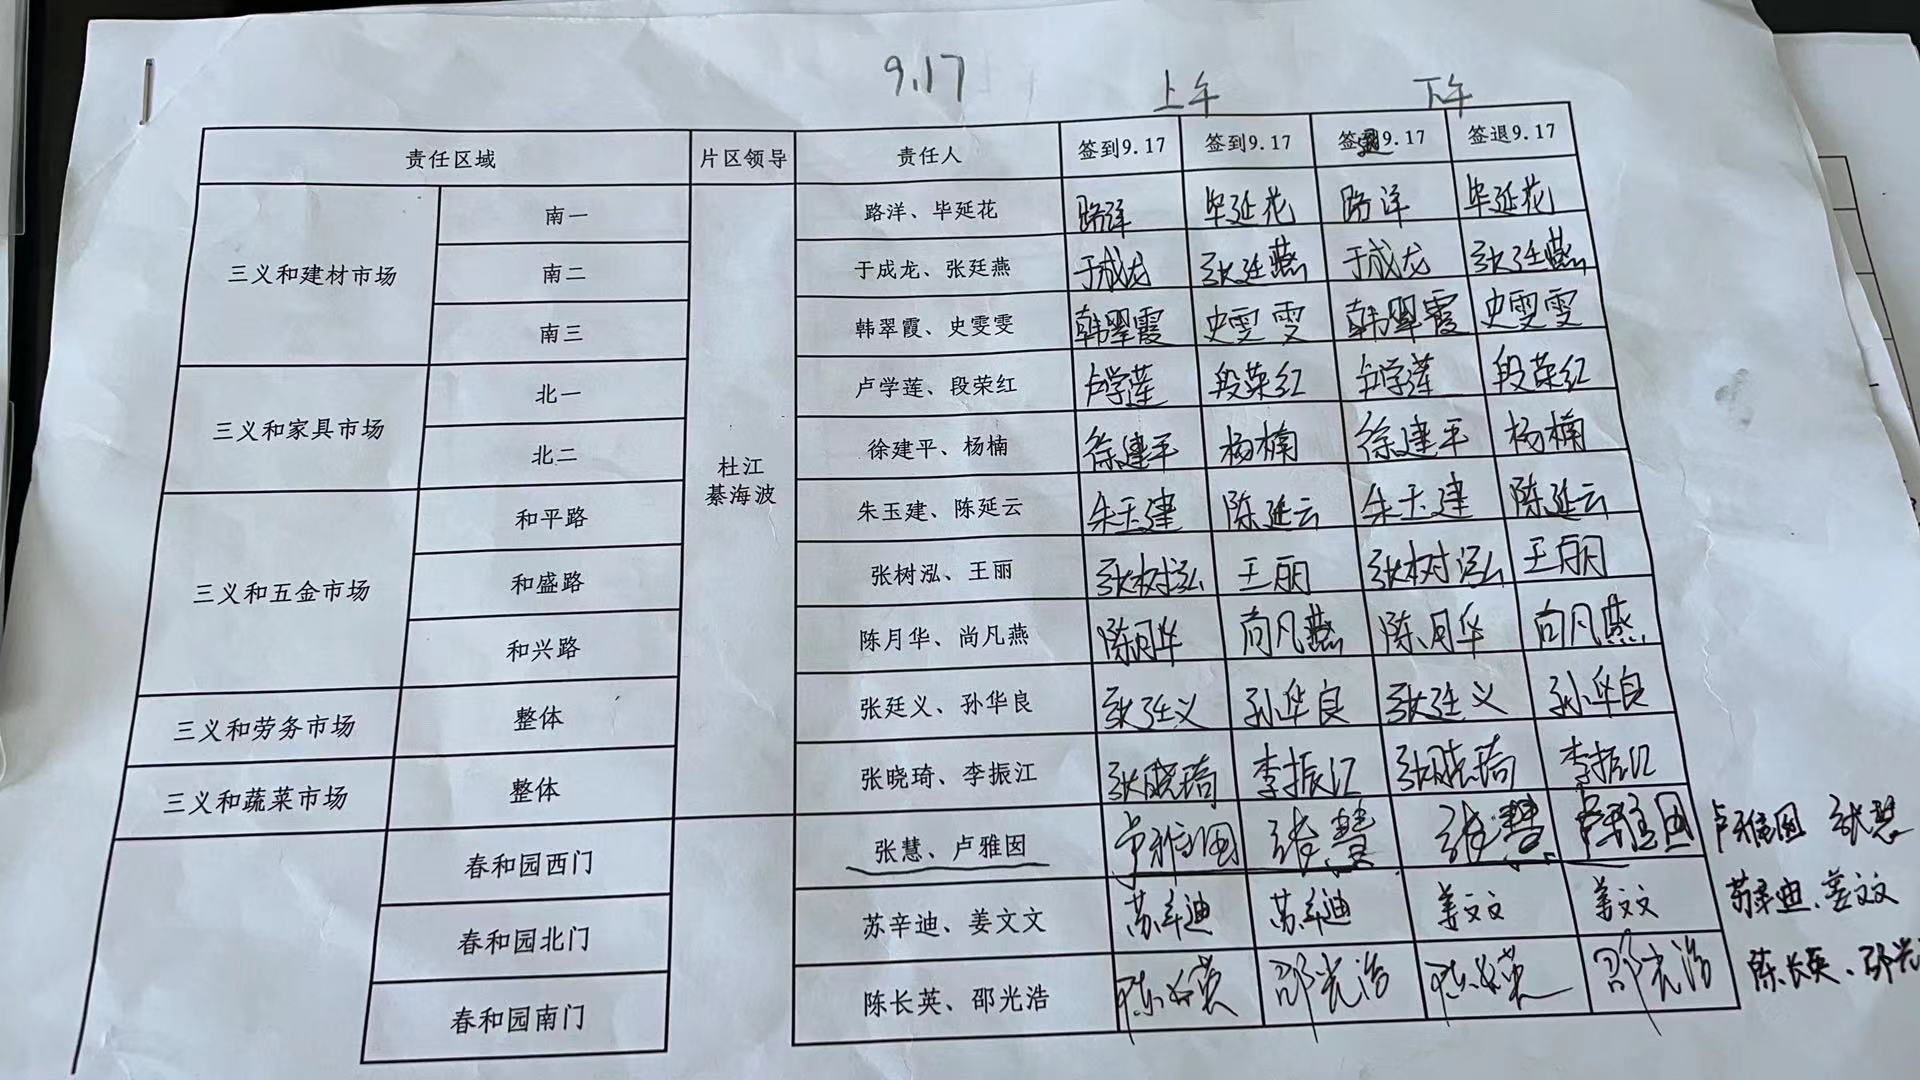 9.17 上午 下午
责任区域 片区领导 责任人 签到9.17 签到9.17 签退9.17 签退9.17
三义和建材市场 南一 路洋、毕延花 路洋 毕延花 路洋 毕延花
南二 于成龙、张廷燕 于成龙 张廷燕 于成龙 张廷燕
南三 韩翠霞、史雯雯 韩翠霞 史雯雯 韩翠霞 史雯雯
三义和家具市场 北一 卢学莲、段荣红 卢学莲 段荣红 卢学莲 段荣红
北二 徐建平、杨楠 徐建平 杨楠 徐建平 杨楠
杜江
綦海波
三义和五金市场 和平路 朱玉建、陈延云 朱玉建 陈延云 朱玉建 陈延云
和盛路 张树泓、王丽 张树泓 王丽 张树泓 王丽
和兴路 陈月华、尚凡燕 陈月华 尚凡燕 陈月华 尚凡燕
三义和劳务市场 整体 张廷义、孙华良 张廷义 孙华良 张廷义 孙华良
三义和蔬菜市场 整体 张晓琦、李振江 张晓琦 李振江 张晓琦 李振江
春和园西门 张慧、卢雅囡 卢雅囡 张慧 张慧 卢雅囡 卢雅囡 张慧
春和园北门 苏辛迪、姜文文 苏辛迪 苏辛迪 姜文文 姜文文 苏辛迪、姜文文
春和园南门 陈长英、邵光浩 陈长英 邵光浩 陈长英 邵光浩 陈长英、邵光